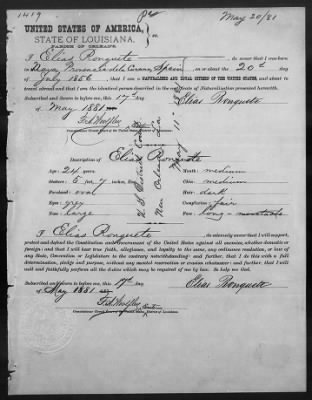 1419
May 20/81
UNITED STATES OF AMERICA,
STATE OF LOUISIANA,
PARISH OF ORLEANS.
ss.
I Elias Ronquete
Spain on or about the 20th
of July 1856, that I am a NATURALIZED AND LOYAL CITIZEN OF THE UNITED STATES, and about to
travel abroad and that I am the identical person described in the Certificate of Naturalization presented herewith.
Subscribed and Sworn to before me, this 17th day
of May 1881
Elias Ronquete
Description of Elias Ronquete
Age: 24 years
Mouth: medium
Stature: 5 7
Chin: medium
Forehead: oval
Hair: dark
Eyes: grey
Complexion: fair
Nose: large
Face: long
U.S.
New Orleans La
May 17
I Elias Ronquete, do solemnly swear that I will support,
protect and defend the Constitution and Government of the United States against all enemies, whether domestic or
foreign; and that I will bear true faith, allegiance, and loyalty to the same, any ordinance, resolution or law of any
State, Convention or Legislature to the contrary notwithstanding; and further, that I do this with a full
determination, pledge and purpose, without any mental reservation or evasion whatsoever; and further, that I will
well and faithfully perform all the duties which may be required of me by law. So help me God.
Subscribed and Sworn to before me, this 17th day
of May 1881
Elias Ronquete